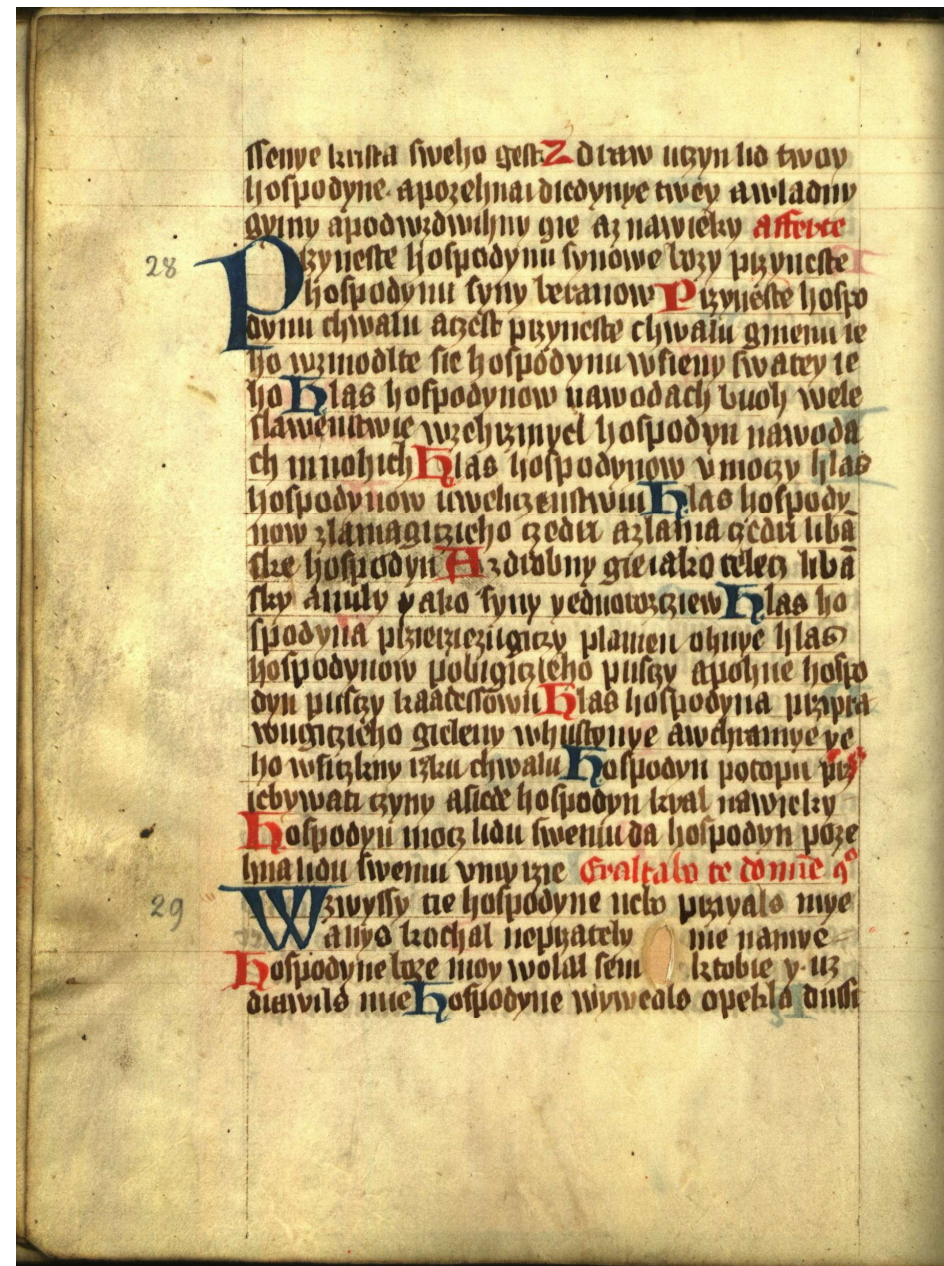 ssenye krista sweho gest Zdraw uczyn lid twoy
hospodyne. apozehnai diedynye twey awladny
gymy apodwzdwihny gie az nawieky afferte
28 Przyneste hospodynu synowe bozy przyneste
hospodynu syny beranow Przyneste hospo
dynu chwalu aczest przyneste chwalu gmenu ie
ho wzmodlte sie hospodynu wsieny swatey ie
ho Hlas hospodynow nawodach buoh wele
slawenstwie wzehrzmyel hospodyn nawoda
ch mnohich Hlas hospodynow vmoczy hlas
hospodynow uweliczenstwiu Hlas hospody
now zlamagiczieho czedr azlama czedri libā
ske hospodyn Azdrobny gie iako telecz libā
sky amily yako syny yednorozcziew Hlas ho
spodyna plamen ohnye hlas
hospodynow pohugicieho puszy apohne hospo
dyn puszy kaadessowu Hlas hospodyna przipra
wugiczieho gieleny whustynye awchramye ye
ho wsiczkny rzku chwalu Hospodyn potopu prz
iebywati czyny asiede hospodyn kral nawieky
Hospodyn mocz lidu swemu da hospodyn poze
hna lidu swemu vmyrzie Exaltabo te domīe qº
29 Wzwyssy tie hospodyne nebo przyyals mye
anys kochal neprzately mie namye
Hospodyne boze moy wolal sem ktobie y uz
drawils mie Hospodyne wywedls opekla dussi